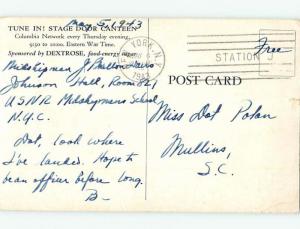 May 5, 1943
TUNE IN! STAGE DOOR CANTEEN
Columbia Network every Thursday evening,
9:30 to 10:00. Eastern War Time.
Sponsored by DEXTROSE, food-energy sugar
Midshipman J
Johnson Hall, Room
USNR Midshipmens School
N.Y.C.
Dot, look where
I've landed. Hope to
be an officer before long.
B-
YORK, N.Y.
1943
STATION J
Free
POST CARD
Miss Dot Polan
Mullins,
S.C.